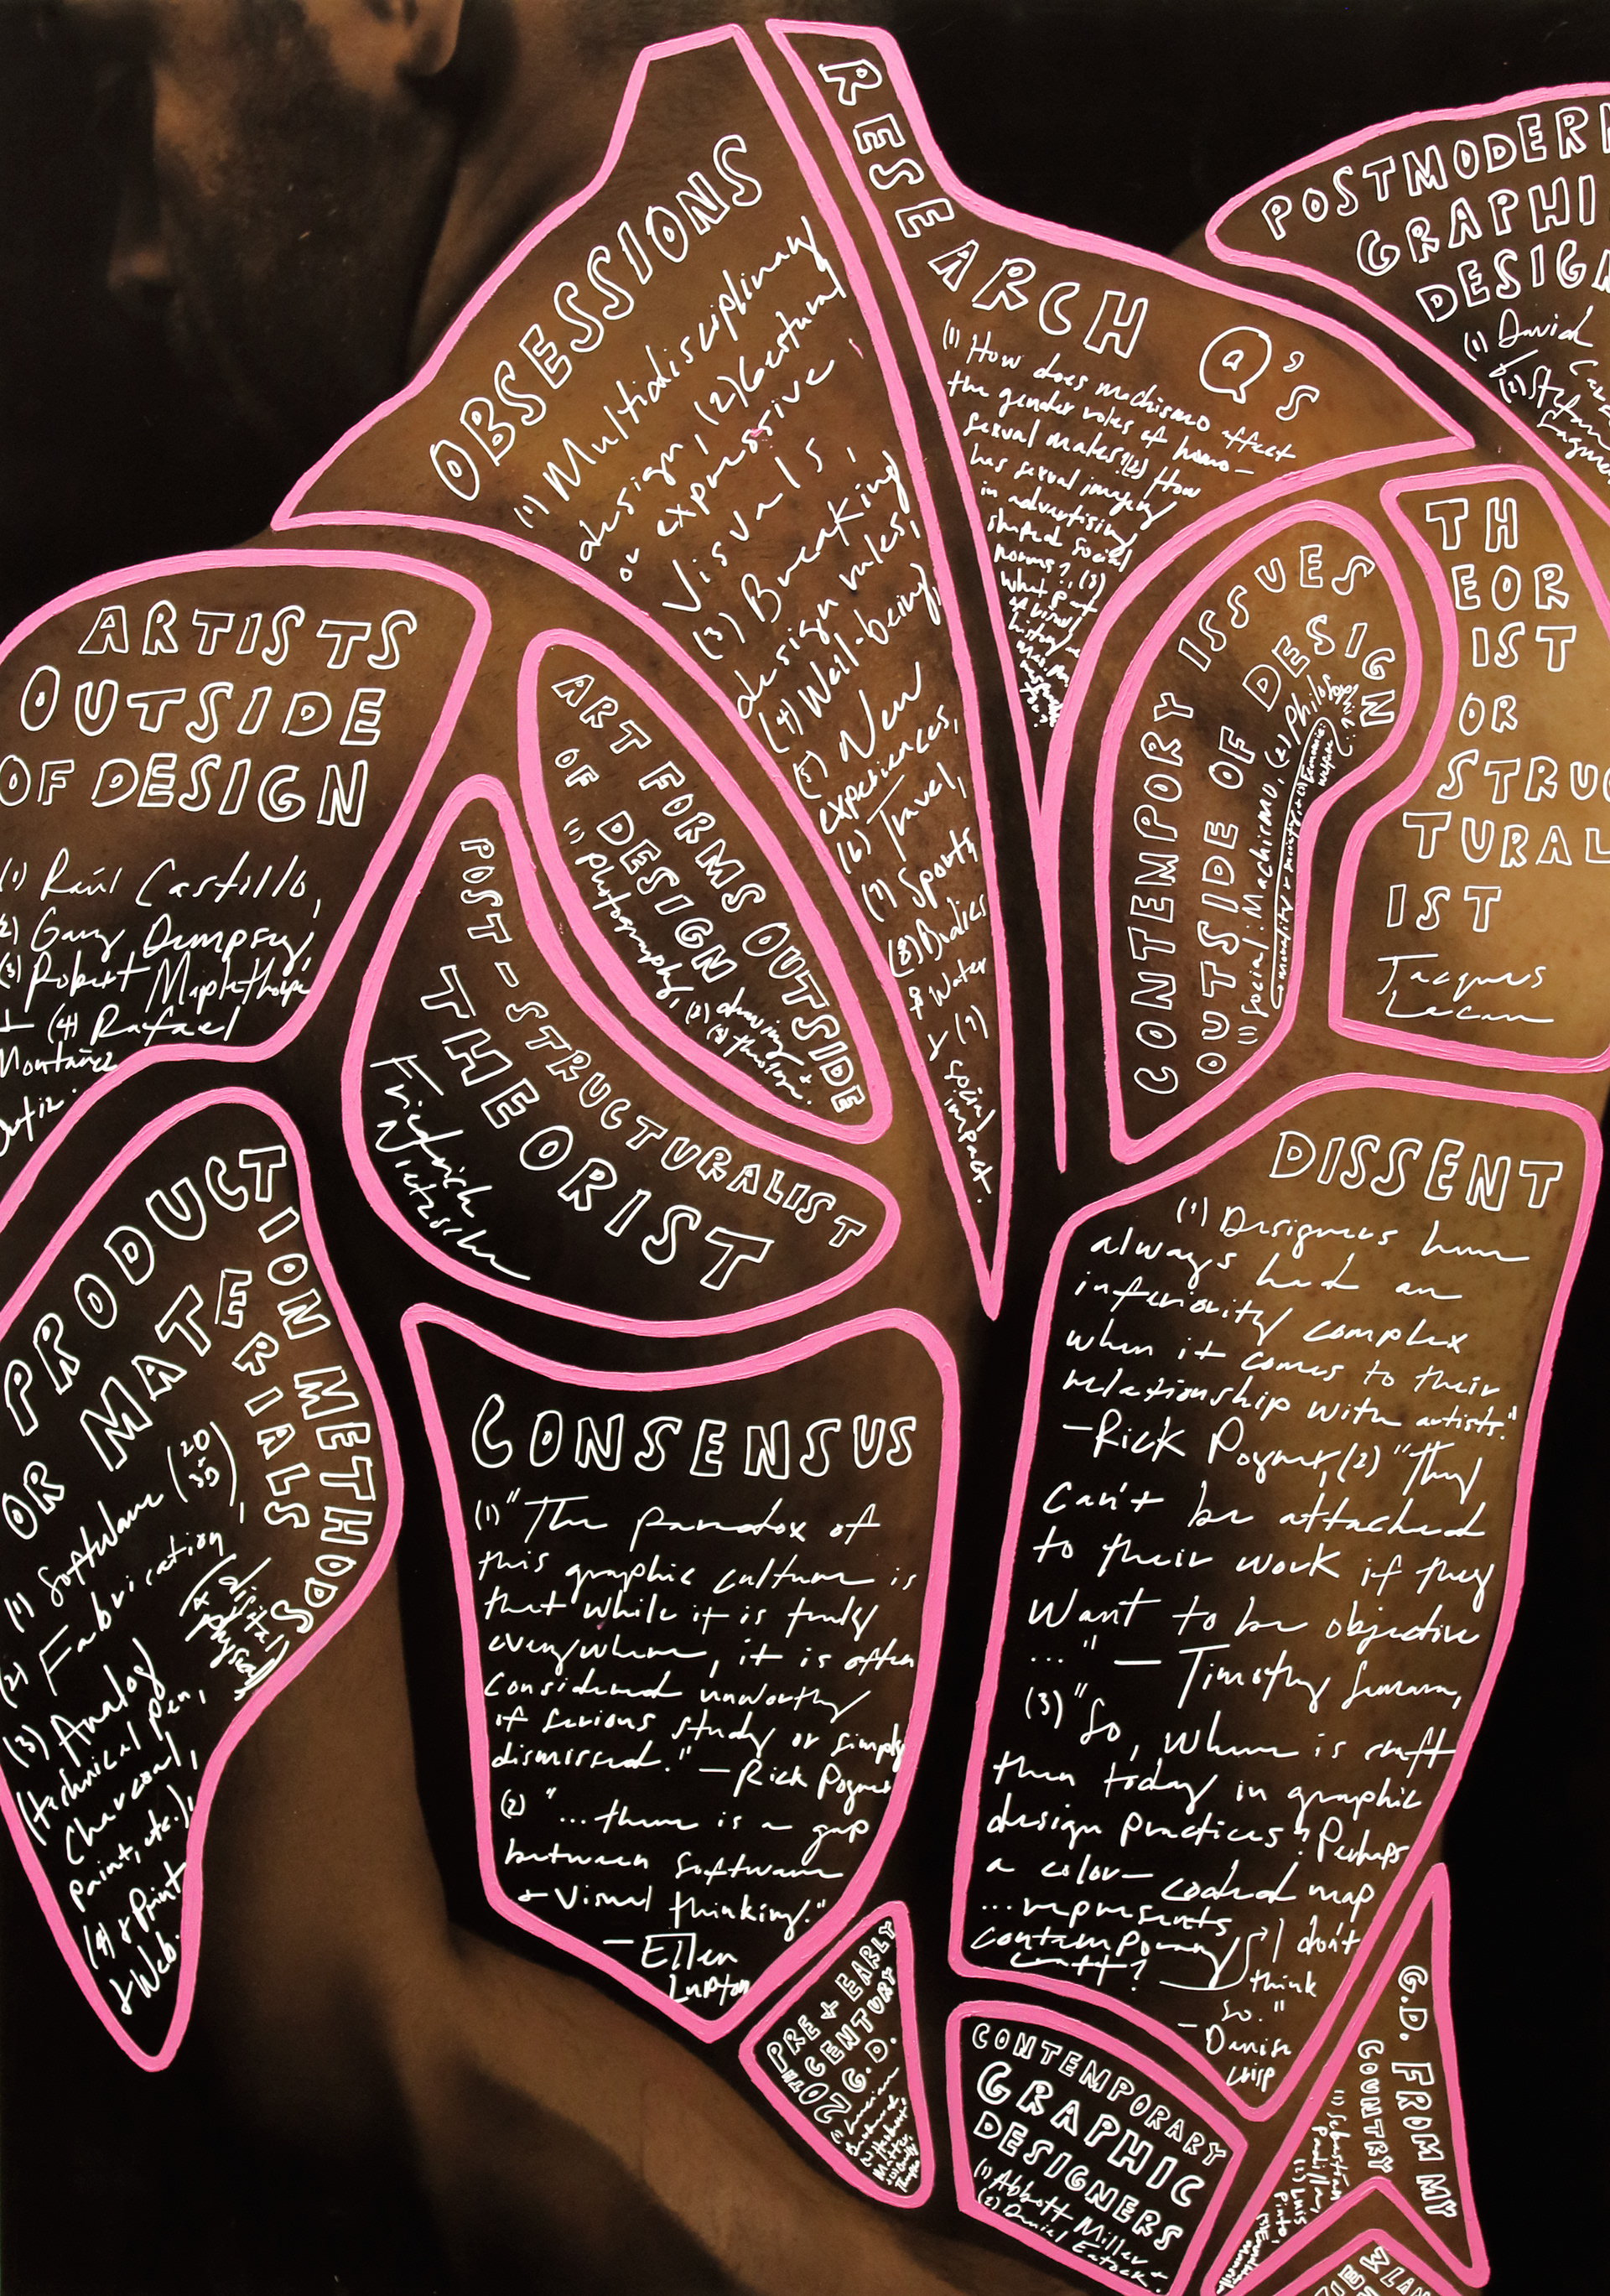 OBSESSIONS
(1) Multidisciplinary
design, (2) Gestural
or expressive
visuals,
(3) Breaking
design rules,
(4) Well-being,
(5) New
experiences,
(6) Travel,
(7) Sports
(8) Bodies
& Water
+ (9)
social
impact.
RESEARCH Q's
(1) How does machismo affect
the gender roles of homo-
sexual males? (2) How
has sexual imagery
in advertising
shaped social
norms?, (3)
what part
of visual
history
POSTMODERN
GRAPHI
DESIGN
(1) David
(2) Stefan
ARTISTS
OUTSIDE
OF DESIGN
(1) Raúl Castillo,
2) Gary Dempsey,
(3) Robert Maplethorpe
+ (4) Rafael
Montañez
Ortiz.
ART FORMS OUTSIDE
OF DESIGN
(1) Photography, (2) drawing +
(3)
CONTEMPORY ISSUES
OUTSIDE OF DESIGN
(1) Social: Machismo, (2) Philosop
TH
EOR
IST
OR
STRUC
TURAL
IST
Jacques
Lecan
POST-STRUCTURALIST
THEORIST
Friedrich
Nietzsche
PRODUCTION METHODS
OR MATERIALS
(1) Software (2D 3D),
(2) Fabrication
(digital + physical)
(3) Analog
(technical pen,
charcoal,
paint, etc.),
(4) + Print
+ Web.
CONSENSUS
(1) "The paradox of
this graphic culture is
that while it is truly
everywhere, it is often
considered unworthy
of serious study or simply
dismissed." — Rick Poynor
(2) "... there is a gap
between software
+ visual thinking."
— Ellen
Lupton
DISSENT
(1) Designers have
always had an
inferiority complex
when it comes to their
relationship with artists."
— Rick Poynor, (2) "They
can't be attached
to their work if they
want to be objective
..." — Timothy Samara,
(3) "So, where is craft
then today in graphic
design practices? Perhaps
a color-coded map
... represents
contemporary
craft? I don't
think
so."
- Denise
Crisp
PRE + EARLY
20TH CENTURY
G.D.
CONTEMPORARY
GRAPHIC
DESIGNERS
(1) Abbott Miller +
(2) Daniel Eatock.
G.D. FROM MY
COUNTRY